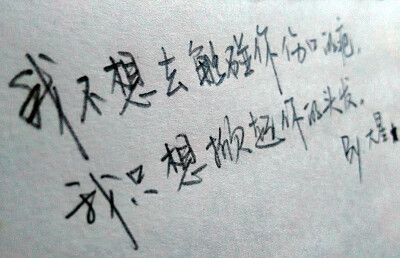 我不想去触碰你伤口的疤,
我只想撩起你的头发。
By 大星